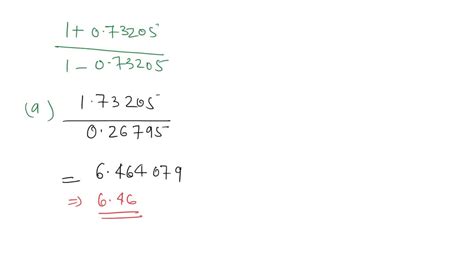 1 + 0.73205
1 - 0.73205
(a) 1.73205
0.26795
= 6.464079
⇒ 6.46